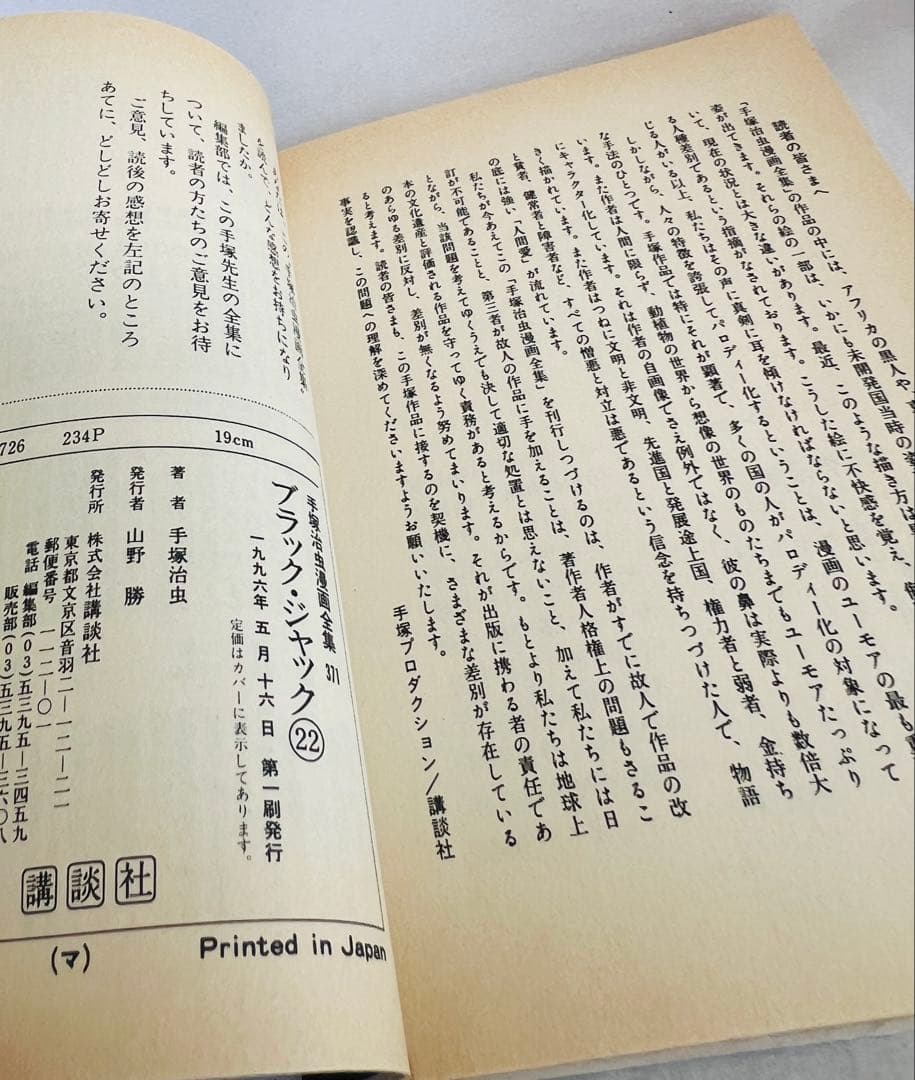 読者の皆さまへ
『手塚治虫漫画全集』の作品の中には、アフリカの黒人や
姿が出てきます。それらの絵の一部は、いかにも未開発国当時の姿
いて、現在の状況とは大きな違いがあります。最近、このような描き方は
る人種差別であるという指摘がなされております。こうした絵に不快感を覚え、
じる人がいる以上、私たちはその声に真剣に耳を傾けなければならないと思います。
しかしながら、人々の特徴を誇張してパロディー化するということは、漫画のユーモアの最も
な手法のひとつです。手塚作品では特にそれが顕著で、多くの国の人がパロディー化の対象になって
います。また作者は人間に限らず、動植物の世界から想像の世界のものたちまでもユーモアたっぷり
にキャラクター化しています。それは作者の自画像でさえ例外ではなく、彼の鼻は実際よりも数倍大
きく描かれています。また作者はつねに文明と非文明、先進国と発展途上国、権力者と弱者、金持ち
と貧者、健常者と障害者など、すべての憎悪と対立は悪であるという信念を持ちつづけた人で、物語
の底には強い「人間愛」が流れています。
私たちが今あえてこの『手塚治虫漫画全集』を刊行しつづけるのは、作者がすでに故人で作品の改
訂が不可能であることと、第三者が故人の作品に手を加えることは、著作者人格権上の問題もさるこ
とながら、当該問題を考えてゆくうえでも決して適切な処置とは思えないこと、加えて私たちには日
本の文化遺産と評価される作品を守ってゆく責務があると考えるからです。もとより私たちは地球上
のあらゆる差別に反対し、差別が無くなるよう努めてまいります。それが出版に携わる者の責任であ
ると考えます。読者の皆さまも、この手塚作品に接するのを契機に、さまざまな差別が存在している
事実を認識し、この問題への理解を深めてくださいますようお願いいたします。
手塚プロダクション/講談社
ましたか。
編集部では、この手塚先生の全集に
ついて、読者の方たちのご意見をお待
ちしています。
ご意見、読後の感想を左記のところ
あてに、どしどしお寄せください。
726 234P 19cm
手塚治虫漫画全集 371
ブラック・ジャック㉒
一九九六年 五月十六日 第一刷発行
定価はカバーに表示してあります。
著者 手塚治虫
発行者 山野 勝
発行所 株式会社講談社
東京都文京区音羽二―一二―二一
郵便番号 一一二―〇一
電話 編集部(〇3)五三九五―三四五九
販売部(〇3)五三九五―三六〇八
講談社
(マ)
Printed in Japan